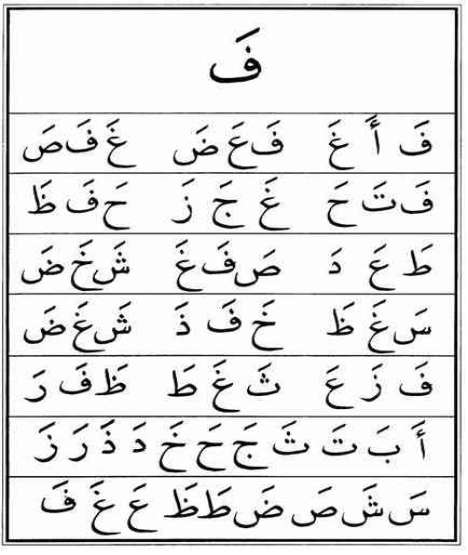 فَ
فَ أَ غَ فَ عَ ضَ غَ فَ صَ
فَ تَ حَ غَ جَ زَ حَ فَ ظَ
طَ عَ دَ صَ فَ غَ شَ خَ ضَ
سَ غَ ظَ خَ فَ ذَ شَ غَ ضَ
فَ زَ عَ ثَ غَ طَ ظَ فَ رَ
أَ بَ تَ ثَ جَ حَ خَ دَ ذَ رَ زَ
سَ شَ صَ ضَ طَ ظَ عَ غَ فَ